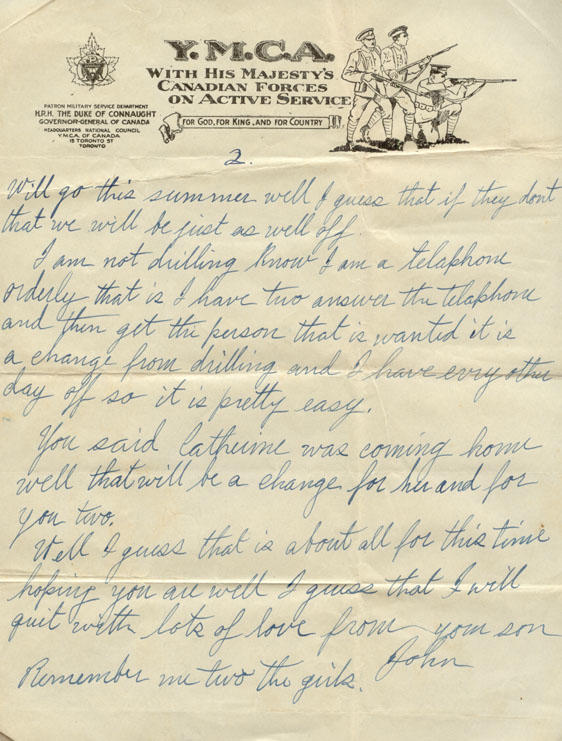 Y.M.C.A.
WITH HIS MAJESTY'S
CANADIAN FORCES
ON ACTIVE SERVICE
FOR GOD, FOR KING, AND FOR COUNTRY
PATRON MILITARY SERVICE DEPARTMENT
H.R.H. THE DUKE OF CONNAUGHT
GOVERNOR-GENERAL OF CANADA
HEADQUARTERS NATIONAL COUNCIL
Y.M.C.A. OF CANADA
15 TORONTO ST
TORONTO
2.
Will go this summer well I guess that if they dont
that we will be just as well off.
I am not drilling know I am a telaphone
orderly that is I have two answer the telaphone
and then get the person that is wanted it is
a change from drilling and I have evry other
day off so it is pretty easy.
You said Catherine was coming home
well that will be a change for her and for
you two.
Well I guess that is about all for this time
hoping you are well I guess that I will
quit with lots of love from your son
John
Remember me two the girls.